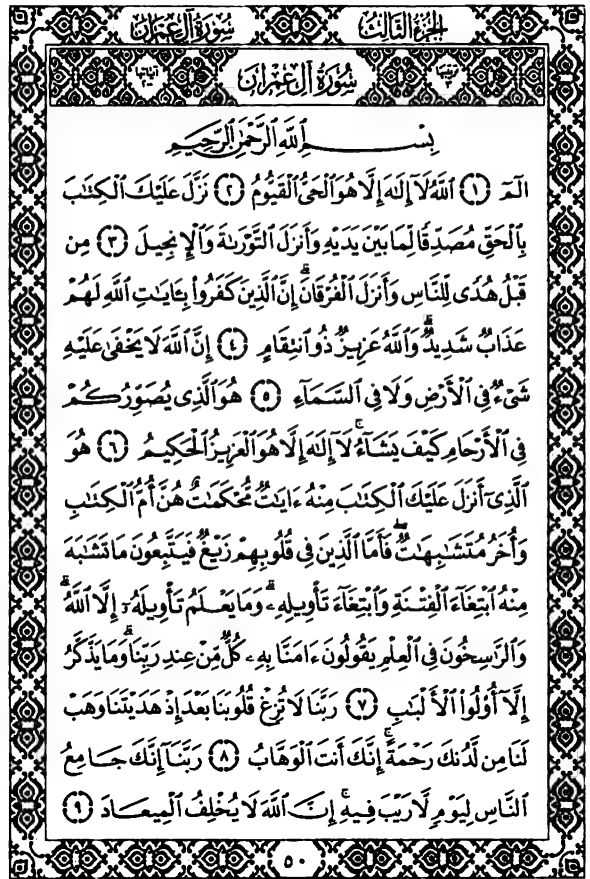 سُورَةُ آلِ عِمْرَانَ الجُزءُ الثَّالِثُ
سُورَةُ آلِ عِمْرَانَ
بِسْمِ اللَّهِ الرَّحْمَٰنِ الرَّحِيمِ
الٓمٓ ١ ٱللَّهُ لَآ إِلَٰهَ إِلَّا هُوَ ٱلْحَىُّ ٱلْقَيُّومُ ٢ نَزَّلَ عَلَيْكَ ٱلْكِتَٰبَ
بِٱلْحَقِّ مُصَدِّقًا لِّمَا بَيْنَ يَدَيْهِ وَأَنزَلَ ٱلتَّوْرَىٰةَ وَٱلْإِنجِيلَ ٣ مِن
قَبْلُ هُدًى لِّلنَّاسِ وَأَنزَلَ ٱلْفُرْقَانَۗ إِنَّ ٱلَّذِينَ كَفَرُوا۟ بِـَٔايَٰتِ ٱللَّهِ لَهُمْ
عَذَابٌ شَدِيدٌۗ وَٱللَّهُ عَزِيزٌ ذُو ٱنتِقَامٍ ٤ إِنَّ ٱللَّهَ لَا يَخْفَىٰ عَلَيْهِ
شَىْءٌ فِى ٱلْأَرْضِ وَلَا فِى ٱلسَّمَآءِ ٥ هُوَ ٱلَّذِى يُصَوِّرُكُمْ
فِى ٱلْأَرْحَامِ كَيْفَ يَشَآءُۚ لَآ إِلَٰهَ إِلَّا هُوَ ٱلْعَزِيزُ ٱلْحَكِيمُ ٦ هُوَ
ٱلَّذِىٓ أَنزَلَ عَلَيْكَ ٱلْكِتَٰبَ مِنْهُ ءَايَٰتٌ مُّحْكَمَٰتٌ هُنَّ أُمُّ ٱلْكِتَٰبِ
وَأُخَرُ مُتَشَٰبِهَٰتٌۖ فَأَمَّا ٱلَّذِينَ فِى قُلُوبِهِمْ زَيْغٌ فَيَتَّبِعُونَ مَا تَشَٰبَهَ
مِنْهُ ٱبْتِغَآءَ ٱلْفِتْنَةِ وَٱبْتِغَآءَ تَأْوِيلِهِۦۗ وَمَا يَعْلَمُ تَأْوِيلَهُۥٓ إِلَّا ٱللَّهُۗ
وَٱلرَّٰسِخُونَ فِى ٱلْعِلْمِ يَقُولُونَ ءَامَنَّا بِهِۦ كُلٌّ مِّنْ عِندِ رَبِّنَاۗ وَمَا يَذَّكَّرُ
إِلَّآ أُو۟لُوا۟ ٱلْأَلْبَٰبِ ٧ رَبَّنَا لَا تُزِغْ قُلُوبَنَا بَعْدَ إِذْ هَدَيْتَنَا وَهَبْ
لَنَا مِن لَّدُنكَ رَحْمَةًۚ إِنَّكَ أَنتَ ٱلْوَهَّابُ ٨ رَبَّنَآ إِنَّكَ جَامِعُ
ٱلنَّاسِ لِيَوْمٍ لَّا رَيْبَ فِيهِۚ إِنَّ ٱللَّهَ لَا يُخْلِفُ ٱلْمِيعَادَ ٩
٥٠